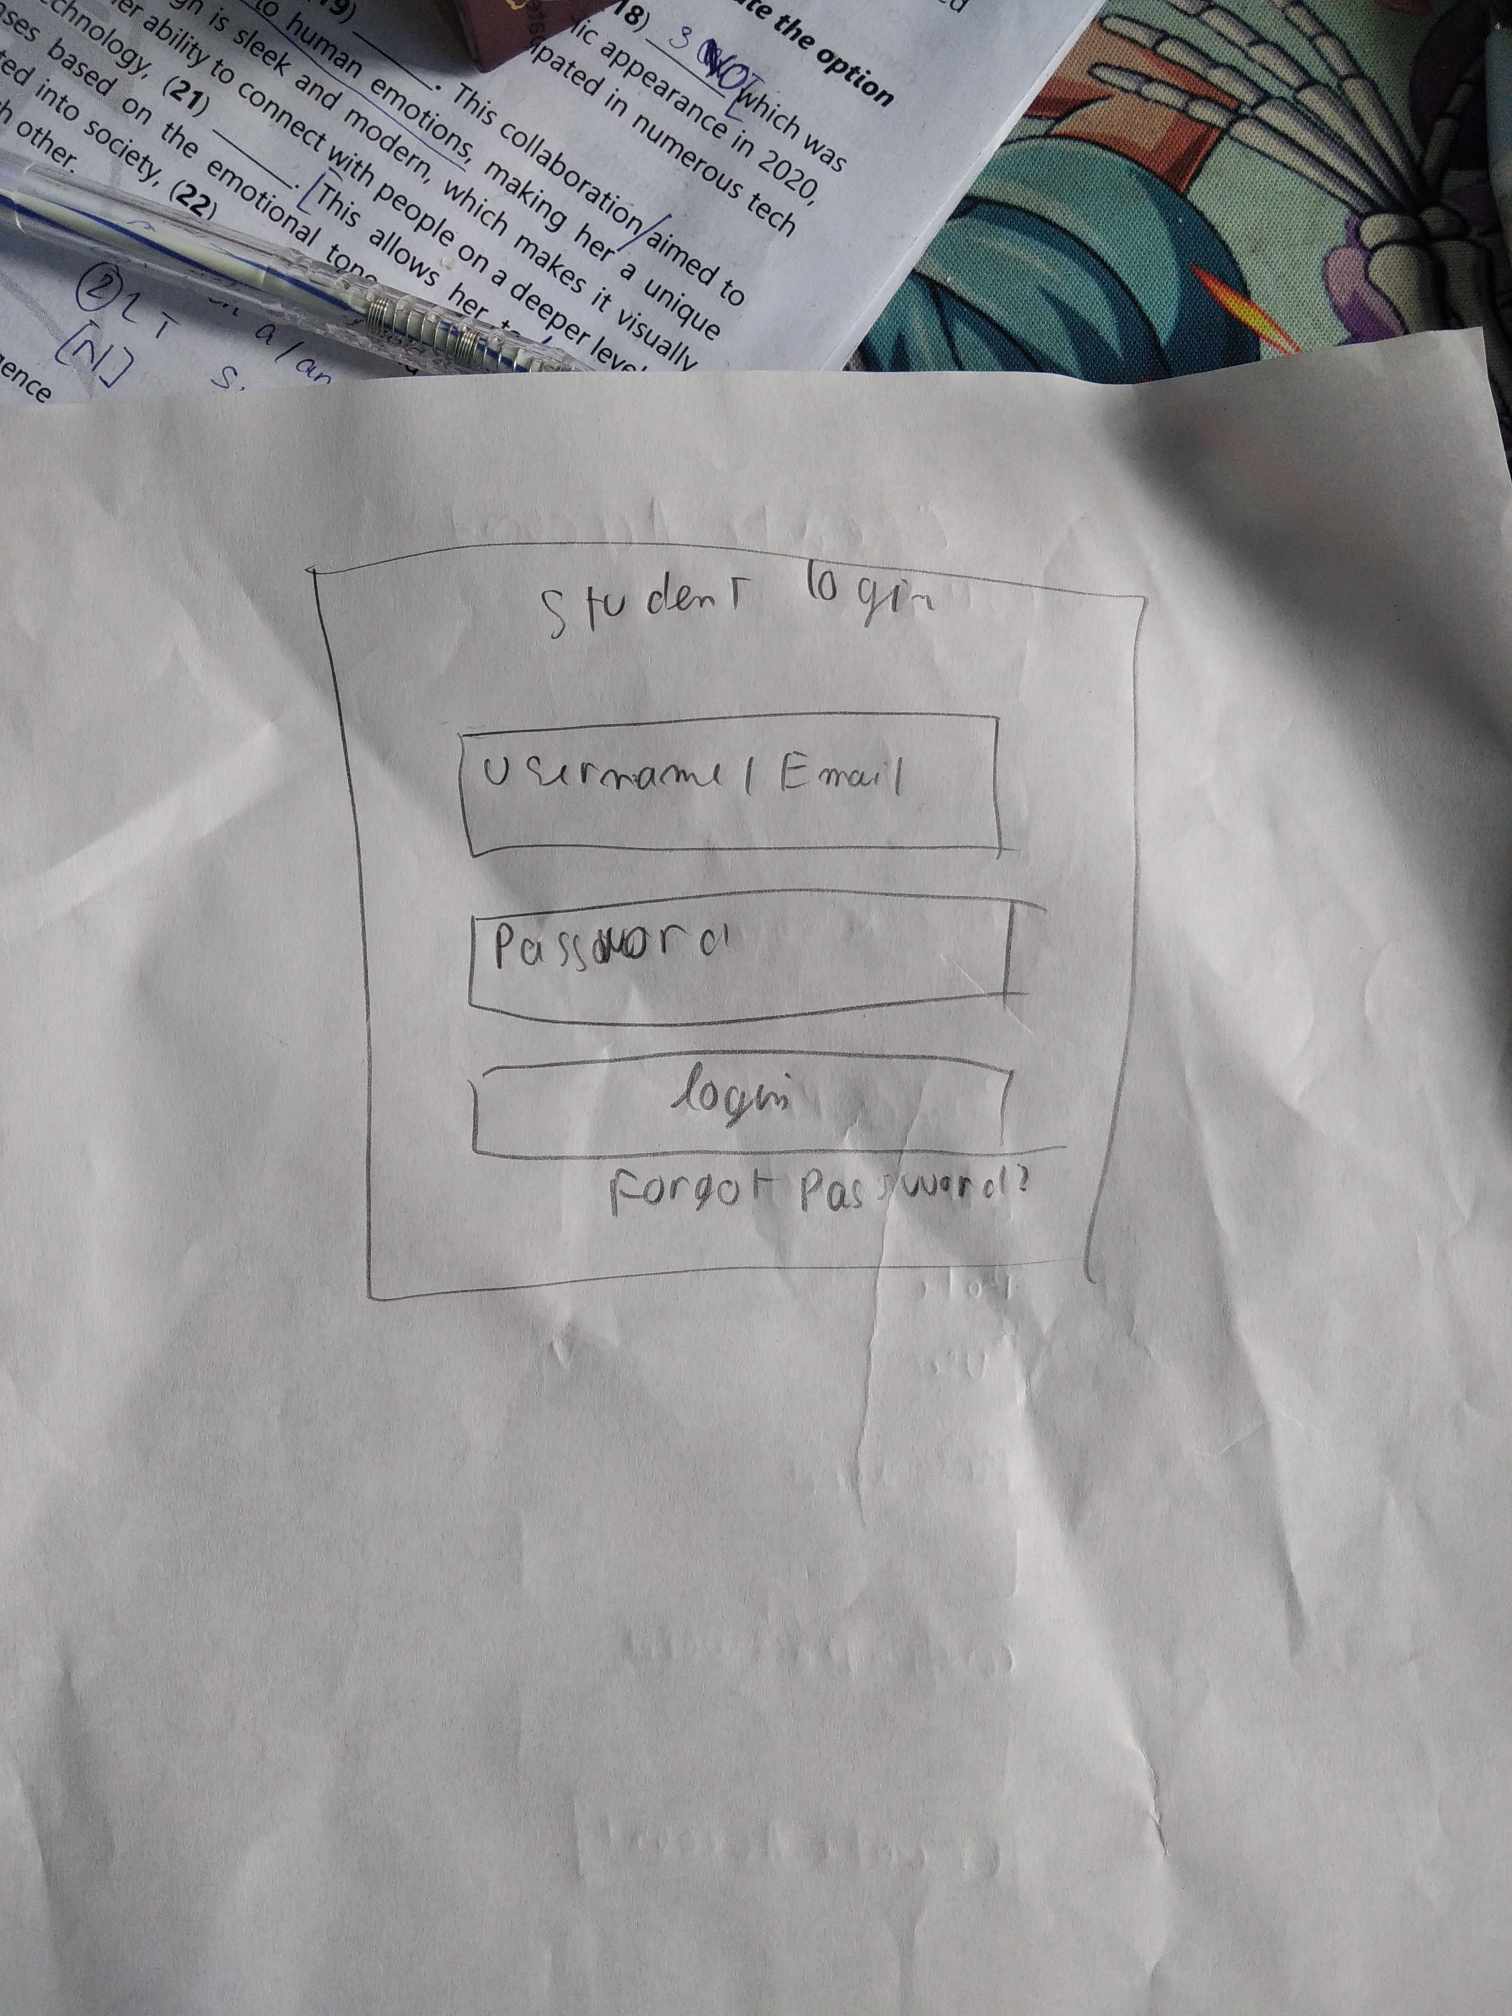 ate the option
18) 3 NOT which was
lic appearance in 2020,
ipated in numerous tech
19)
to human emotions, making her a unique
. This collaboration/aimed to
gn is sleek and modern, which makes it visually
er ability to connect with people on a deeper level
echnology, (21) . [This allows her
ses based on the emotional tone
ted into society, (22)
h other.
② L T
[N]
a / an
S.
ence
Student login
Username / Email
Password
login
Forgot Password?